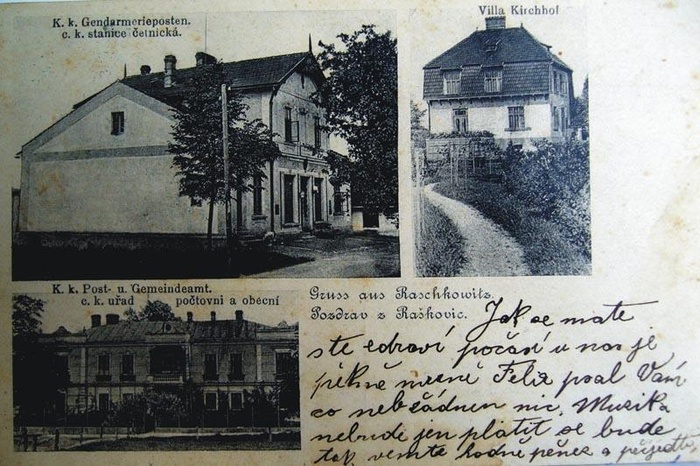 K. k. Gendarmerieposten.
c. k. stanice četnická.
Villa Kirchhof
K. k. Post- u. Gemeindeamt.
c. k. uřad počtovni a obecní
Gruss aus Raschkowitz.
Pozdrav z Raškovic.
Jak se mate
ste zdraví počasí u nas je
pěkné Felix psal Vám
co nebo žádnen nic. Muzika
nebude jen platit se bude
tak vemte hodně pěnez a přijedte